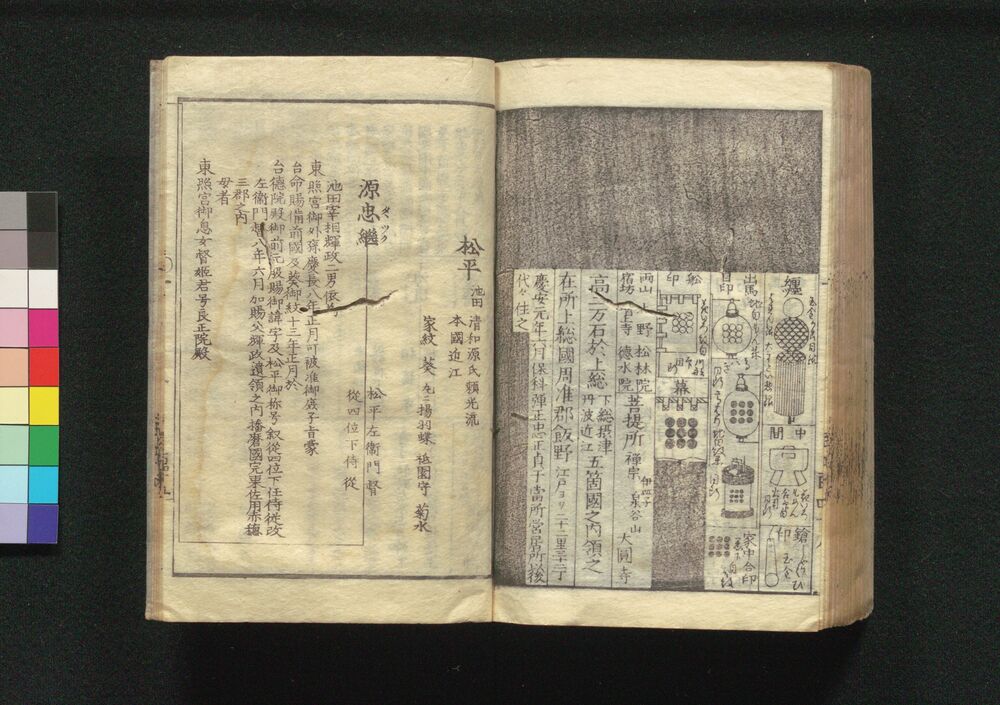 纏
出馬印
中間
鎗印
家中合印
舩印
幕
両山 上野 松林院
宿坊 増上寺 徳水院
菩提所 禅宗 泉谷山 大圓寺
伊皿子
高二万石於上総 下総摂津 丹波近江 五箇國之内領之
在所上総國周准郡飯野 江戸ヨリ二十二里三十丁
慶安元年六月保科弾正忠正貞于當所営居所以後
代々住之
松平 池田
清和源氏頼光流
本國近江
家紋 葵 丸ニ揚羽蝶 祗園守 菊水
源忠繼
タヾツク
松平左衛門督
從四位下侍從
池田宰相輝政二男依爲
東照宮御外孫慶長八年正月可被准御庶子旨蒙
台命賜備前國及葵御紋十三年正月於
台德院殿御前元服賜御諱字及松平御称号叙從四位下任侍從改
左衞門督十八年六月加賜父輝政遺領之内播磨國宍粟佐用赤穂
三郡之内
母者
東照宮御息女督姫君号良正院殿